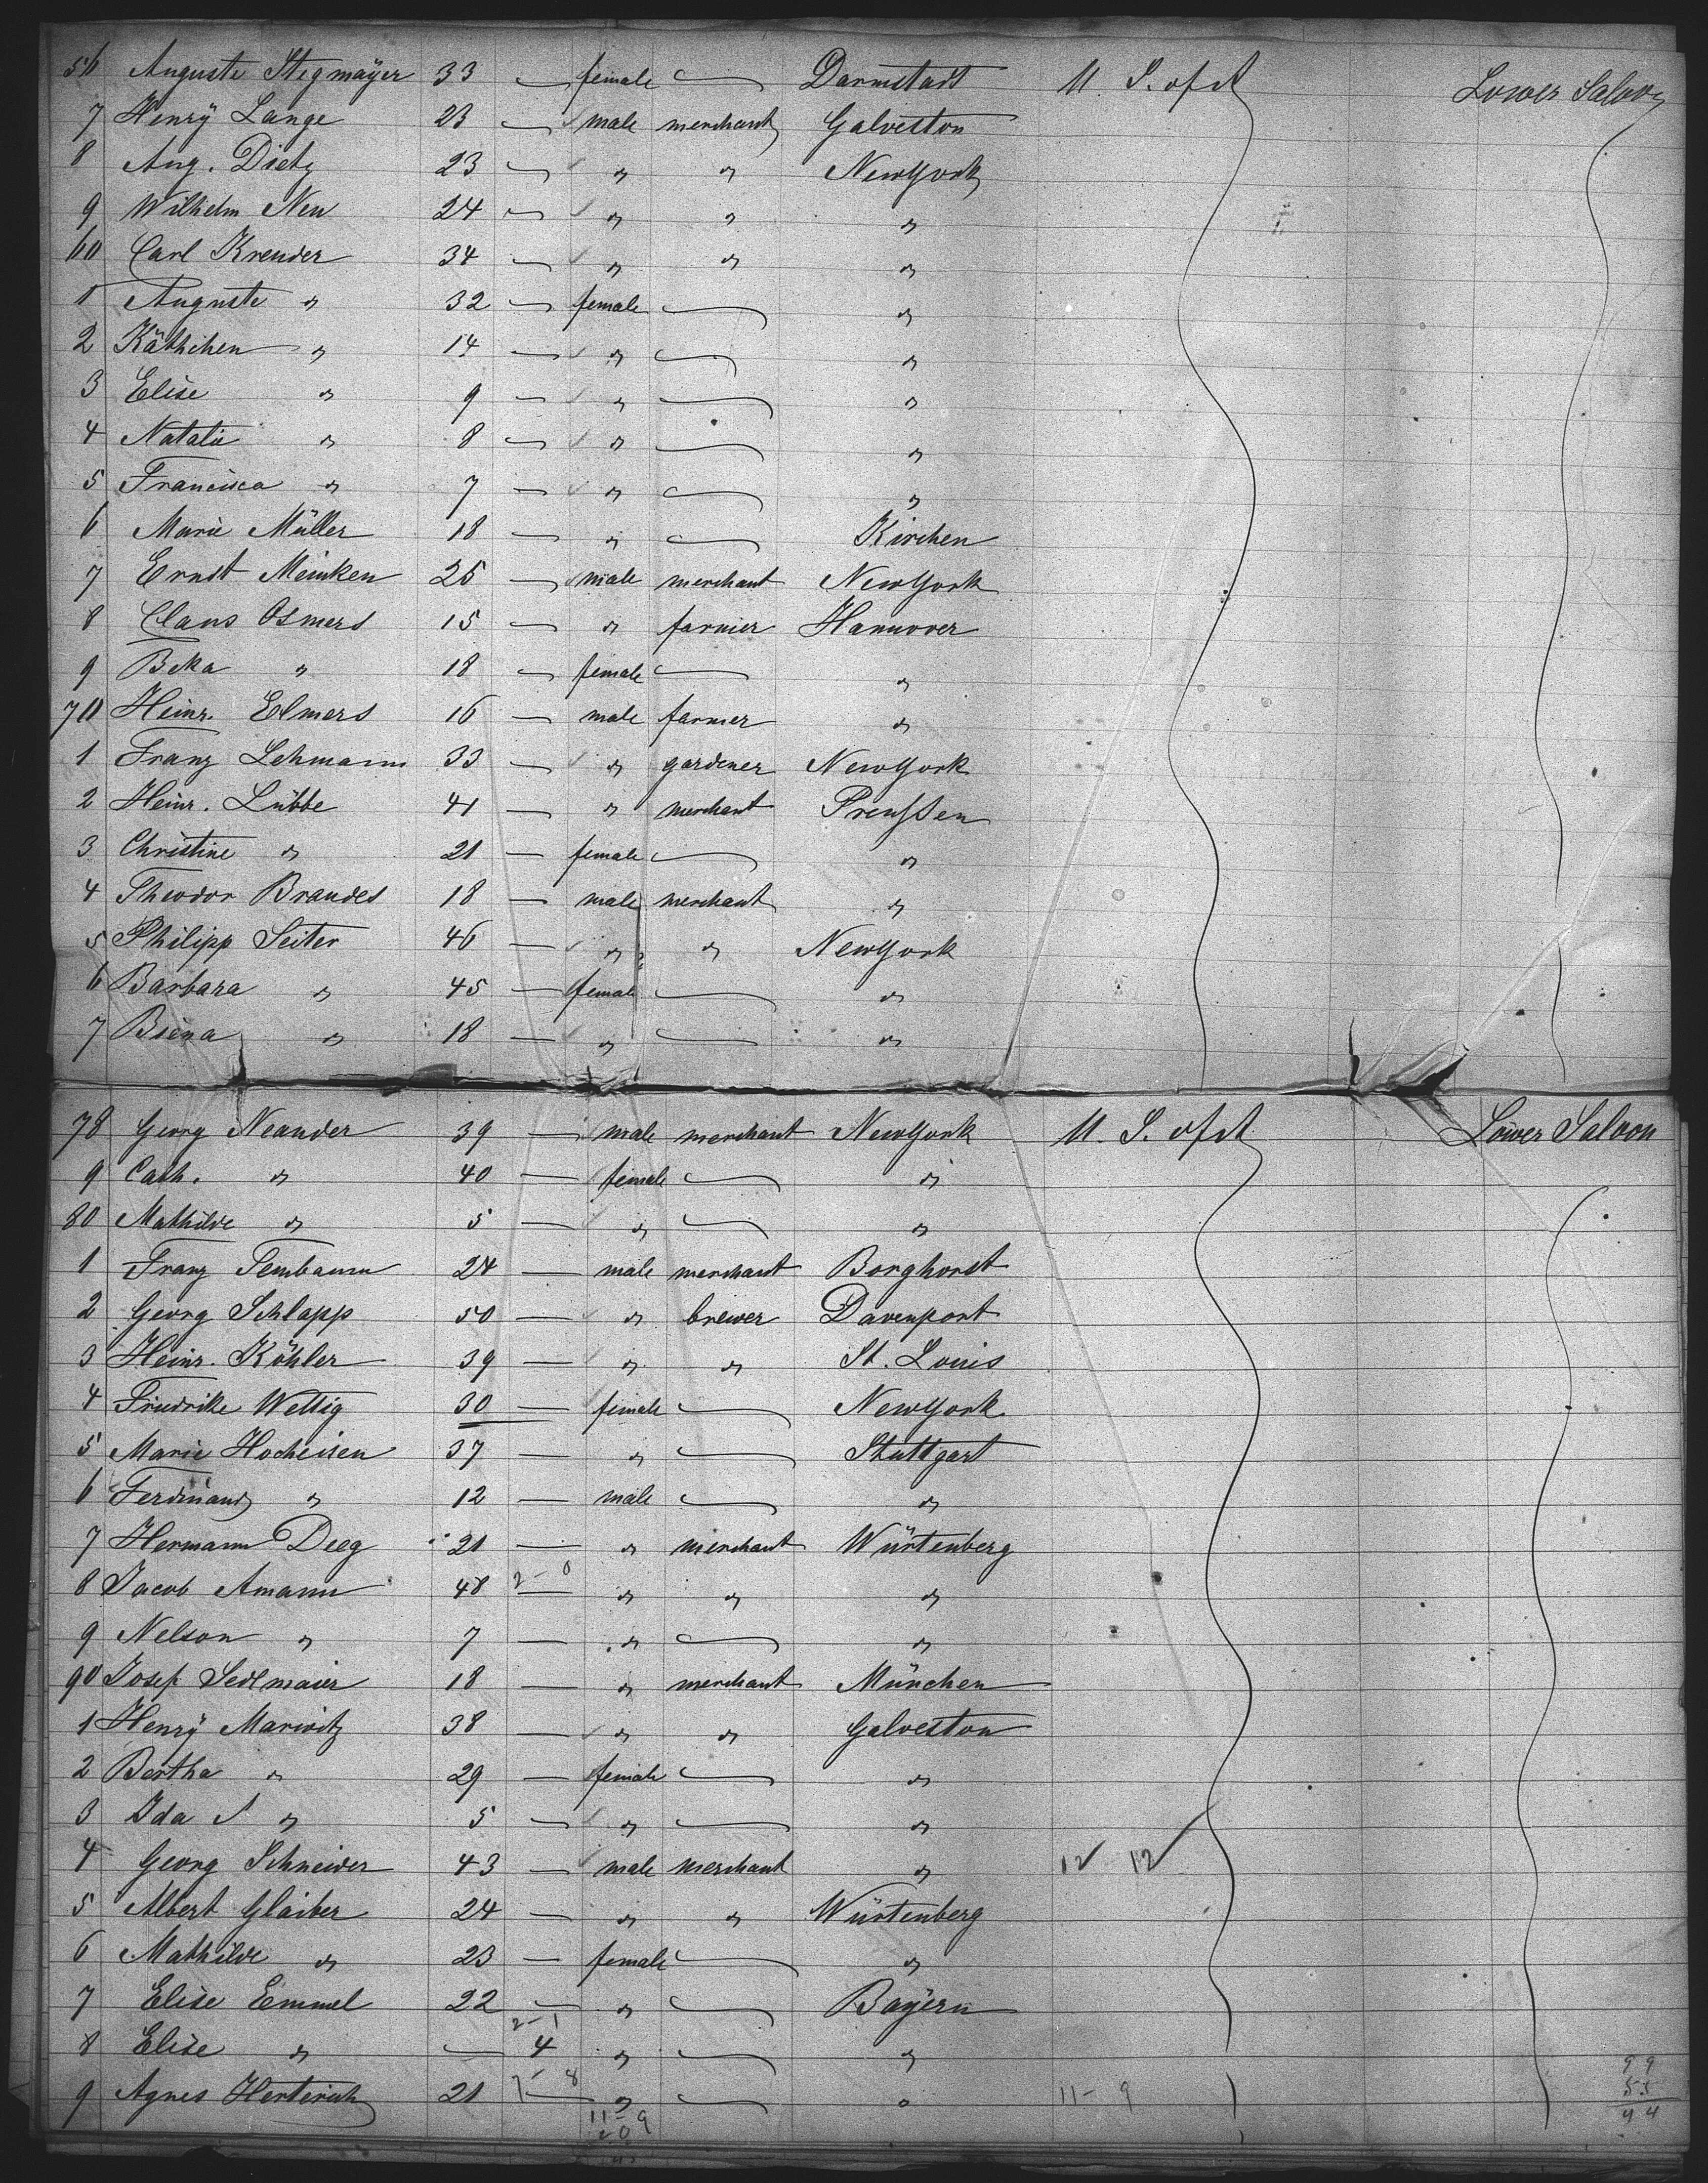 56 Auguste Stegmayer 33 — female — Darmstadt U. S. of A Lower Saloon
7 Henrÿ Lange 23 — male merchant Galveston
8 Aug. Dietz 23 — " " NewYork
9 Wilhelm Neu 24 — " " "
60 Carl Kreuder 34 — " " "
1 Auguste " 32 — female — "
2 Käthchen " 14 — " — "
3 Elise " 9 — " — "
4 Natalie " 8 — " — "
5 Francisca " 7 — " — "
6 Marie Müller 18 — " — Kirchen
7 Ernst Meinken 25 — male merchant NewYork
8 Claus Osmers 15 — " farmer Hannover
9 Beka " 18 — female — "
70 Heinr. Elmers 16 — male farmer "
1 Franz Lehmann 33 — " gardener NewYork
2 Heinr. Lübbe 41 — " merchant Preußen
3 Christine " 21 — female — "
4 Theodor Brandes 18 — male merchant "
5 Philipp Seiter 46 — " " NewYork
6 Barbara " 45 — female — "
7 " 18 — " — "
78 Georg Neander 39 — male merchant NewYork U. S. of A Lower Saloon
9 Cath. " 40 — female — "
80 Mathilde " 5 — " — "
1 Franz Tembaum 24 — male merchant Borghorst
2 Georg Schlapp 50 — " brewer Davenport
3 Heinr. Köhler 39 — " " St. Louis
4 Friedrike Wettig 30 — female — NewYork
5 Marie Hocheisen 37 — " — Stuttgart
6 Ferdinand " 12 — male — "
7 Hermann Deeg 21 — " merchant Würtenberg
8 Jacob Amann 48 2-0 — " " "
9 Nelson " 7 — " — "
90 Josef Sedlmaier 18 — " merchant München
1 Henrÿ Marwitz 38 — " " Galveston
2 Bertha " 29 — female — "
3 Ida " 5 — " — "
4 Georg Schneider 43 — male merchant " 12 12
5 Albert Glaiber 24 — " " Würtenberg
6 Mathilde " 23 — female — "
7 Elise Emmel 22 — " — Bayern
8 Elise " — 2-1 4 " — "
9 Agnes Herterich 21 — " — " 11-9
11-9
99
55
44